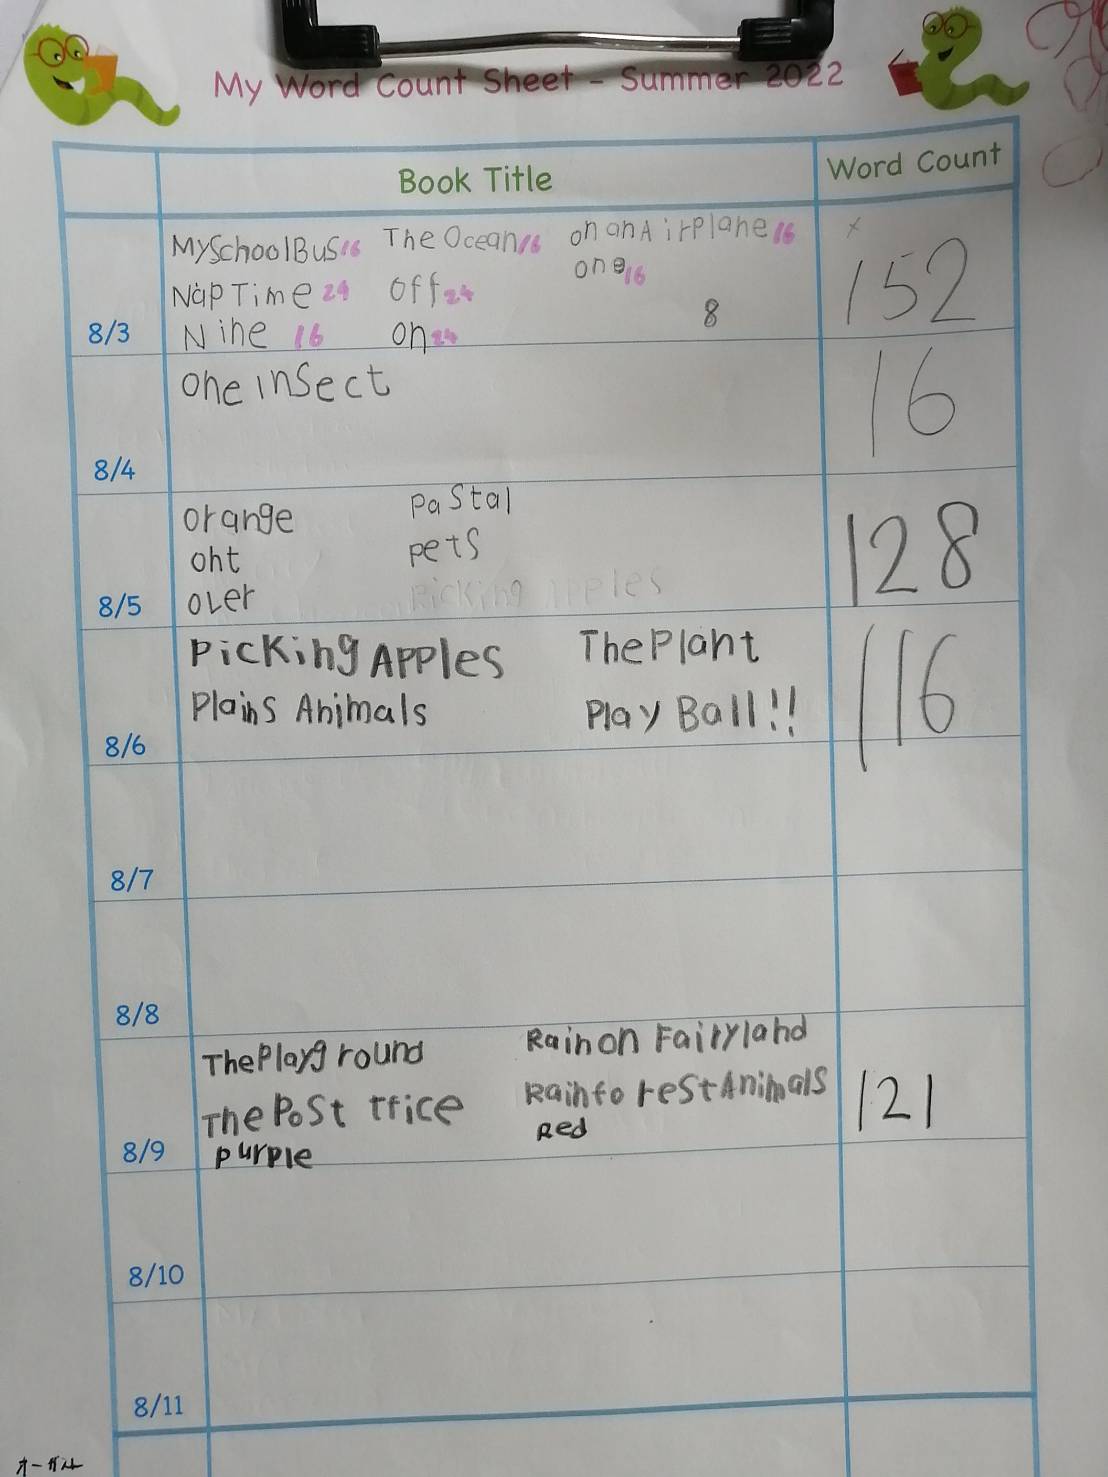 My Word Count Sheet - Summer 2022
Book Title
Word Count
8/3
My School Bus 16 The Ocean 16 on an Airplane 16
Nap Time 24 off 24 one 16
Nine 16 on 24 8
152
8/4
one insect
16
8/5
orange pastal
oht pets
over Picking Apples
128
8/6
Picking Apples The Plant
Plains Animals Play Ball!!
116
8/7
8/8
8/9
The Playground Rain on Fairyland
The Post Tfice Rainforest Animals
purple Red
121
8/10
8/11
オーガスト